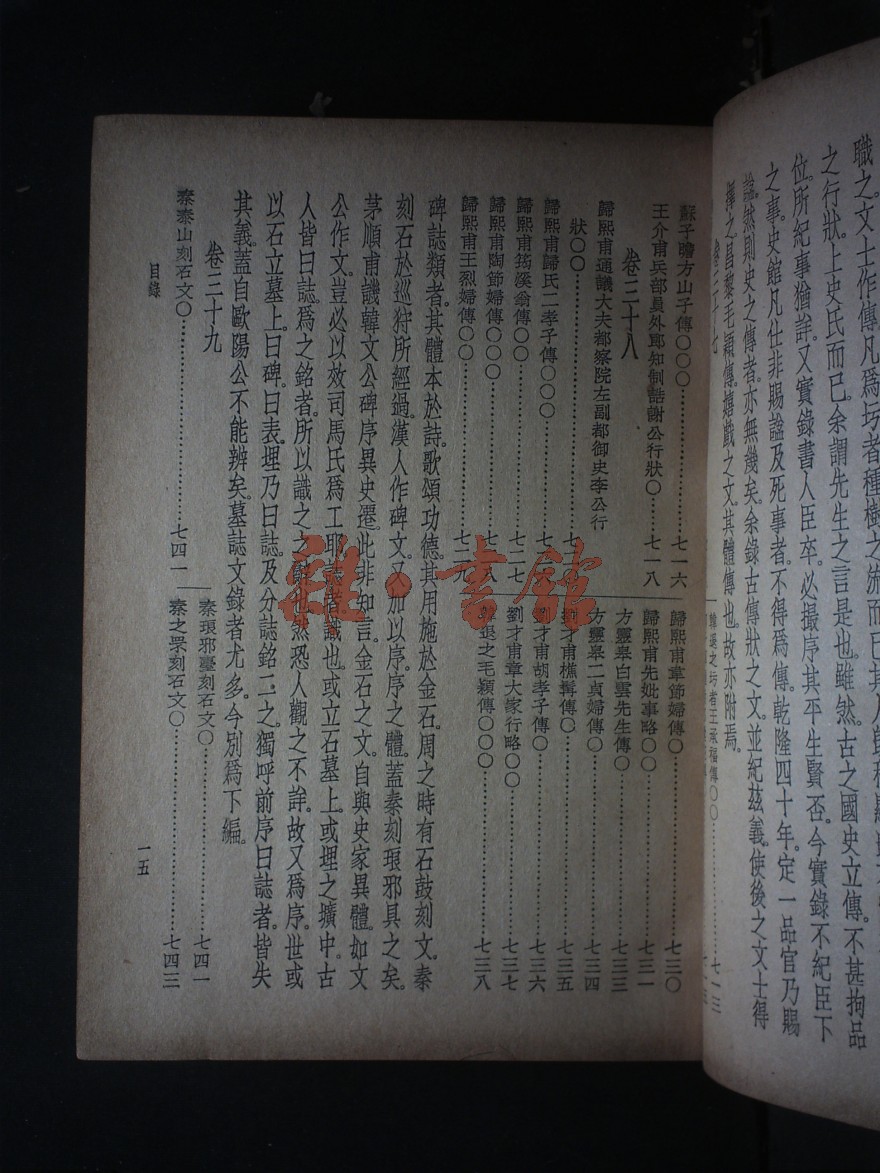 職之文士作傳凡爲圬者種樹之流而已
之行狀上史氏而已余謂先生之言是也雖然古之國史立傳不甚拘品
位所紀事猶詳又實錄書人臣卒必撮序其平生賢否今實錄不紀臣下
之事史館凡仕非賜諡及死事者不得爲傳乾隆四十年定一品官乃賜
諡然則史之傳者亦無幾矣余錄古傳狀之文並紀茲義使後之文士得
擇之昌黎毛穎傳嬉戲之文其體傳也故亦附焉
卷三十七
韓退之圬者王承福傳〇〇……七一三
蘇子瞻方山子傳〇〇〇……七一六
王介甫兵部員外郎知制誥謝公行狀〇……七一八
卷三十八
歸熙甫通議大夫都察院左副都御史李公行
狀〇〇……七
歸熙甫歸氏二孝子傳〇〇〇……七
歸熙甫筠溪翁傳〇〇……七二七
歸熙甫陶節婦傳〇〇〇……七二八
歸熙甫王烈婦傳〇〇……七二九
歸熙甫韋節婦傳〇〇……七三〇
歸熙甫先妣事略〇〇……七三一
方靈皋白雲先生傳〇……七三三
方靈皋二貞婦傳〇……七三四
劉才甫樵髯傳〇……七三五
劉才甫胡孝子傳〇……七三六
劉才甫章大家行略〇〇……七三七
韓退之毛穎傳〇〇〇……七三八
碑誌類者。其體本於詩。歌頌功德。其用施於金石。周之時有石鼓刻文。秦
刻石於巡狩所經過。漢人作碑文。又加以序。序之體。蓋秦刻琅邪具之矣。
茅順甫譏韓文公碑序異史遷。此非知言。金石之文。自與史家異體。如文
公作文。豈必以效司馬氏爲工耶。誌者。識也。或立石墓上。或埋之壙中。古
人皆曰誌。爲之銘者。所以識之之辭也。然恐人觀之不詳。故又爲序。世或
以石立墓上。曰碑。曰表。埋乃曰誌。及分誌銘二之。獨呼前序曰誌者。皆失
其義。蓋自歐陽公不能辨矣。墓誌文錄者尤多。今別爲下編。
卷三十九
秦泰山刻石文〇……七四一
秦琅邪臺刻石文〇……七四一
秦之罘刻石文〇……七四三
目錄
一五
雜·書館